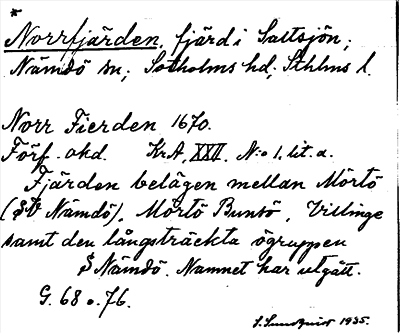 *
Norrfjärden, fjärd i Saltsjön;
Nämdö sn; Sotholms hd; Sthlms l.
Norr Fierden 1670.
Förf. okd. KrA, XXVI, N:o 1, lit. a.
Fjärden belägen mellan Mörtö
(SV Nämdö), Mörtö Bunsö, Villinge
samt den långsträckta ögruppen
S Nämdö. Namnet har utgått.
G. 68 o. 76.
S. Sundquist 1935.